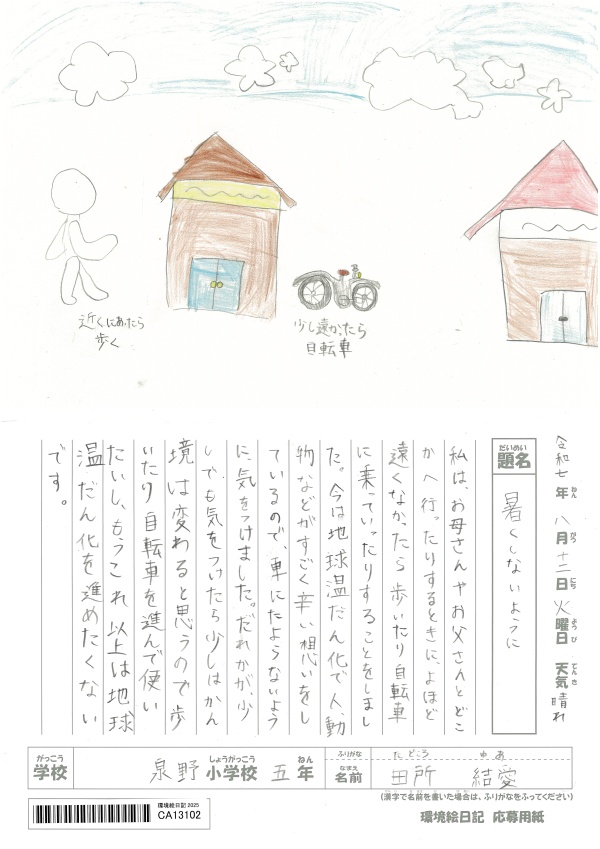 近くにあったら
歩く
少し遠かったら
自転車
令和七年ねん 八月がつ 十二日にち 火曜日ようび 天気てんき 晴れ
だいめい
題名
暑くしないように
私は、お母さんやお父さんとどこ
かへ行ったりするときに、よほど
遠くなかったら歩いたり自転車
に乗っていったりすることをしまし
た。今は地球温だん化で人、動
物などがすごく辛い想いをし
ているので、車にたようらないよう
に、気をつけました。だれかが、少
しでも気をつけたら少しはかん
境は変わると思うので歩
いたり自転車を進んで使い
たいし、もうこれ以上は地球
温だん化を進めたくない
です。
がっこう しょうがっこう ねん
学校 泉野小学校 五年
ふりがな たどころ ゆあ
なまえ
名前 田所 結愛
(漢字で名前を書いた場合は、ふりがなをふってください)
環境絵日記 2025
CA13102
環境絵日記 応募用紙